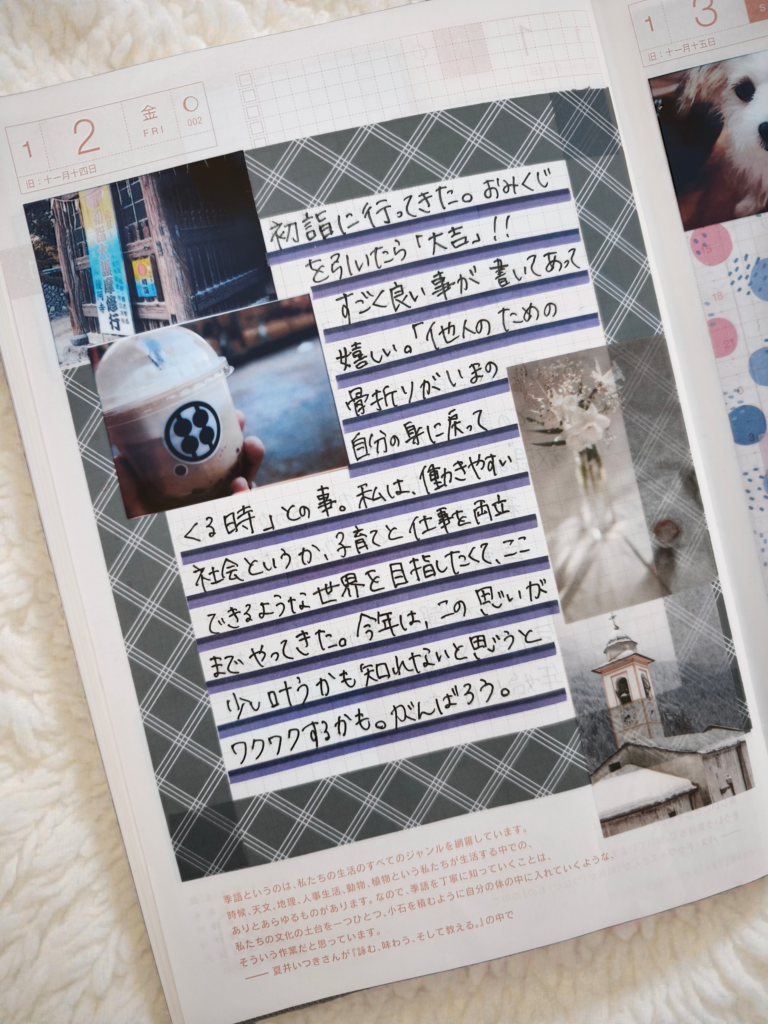 1 2
金
FRI
002
旧：十一月十四日
初詣に行ってきた。おみくじ
を引いたら「大吉」!!
すごく良い事が書いてあって
嬉しい。「他人のための
骨折りがいまの
自分の身に戻って
くる時」との事。私は、働きやすい
社会というか、子育てと仕事を両立
できるような世界を目指したくて、ここ
までやってきた。今年は、この思いが
少し叶うかも知れないと思うと
ワクワクするかも。がんばろう。
季語というのは、私たちの生活のすべてのジャンルを網羅しています。
時候、天文、地理、人事生活、動物、植物という私たちが生活する中での、
ありとあらゆるものがあります。なので、季語を丁寧に知っていくことは、
私たちの文化の土台を一つひとつ、小石を積むように自分の体の中に入れていくような、
そういう作業だと思っています。
── 夏井いつきさんが『詠む、味わう、そして教える。』の中で
1 3
旧：十一月十五日